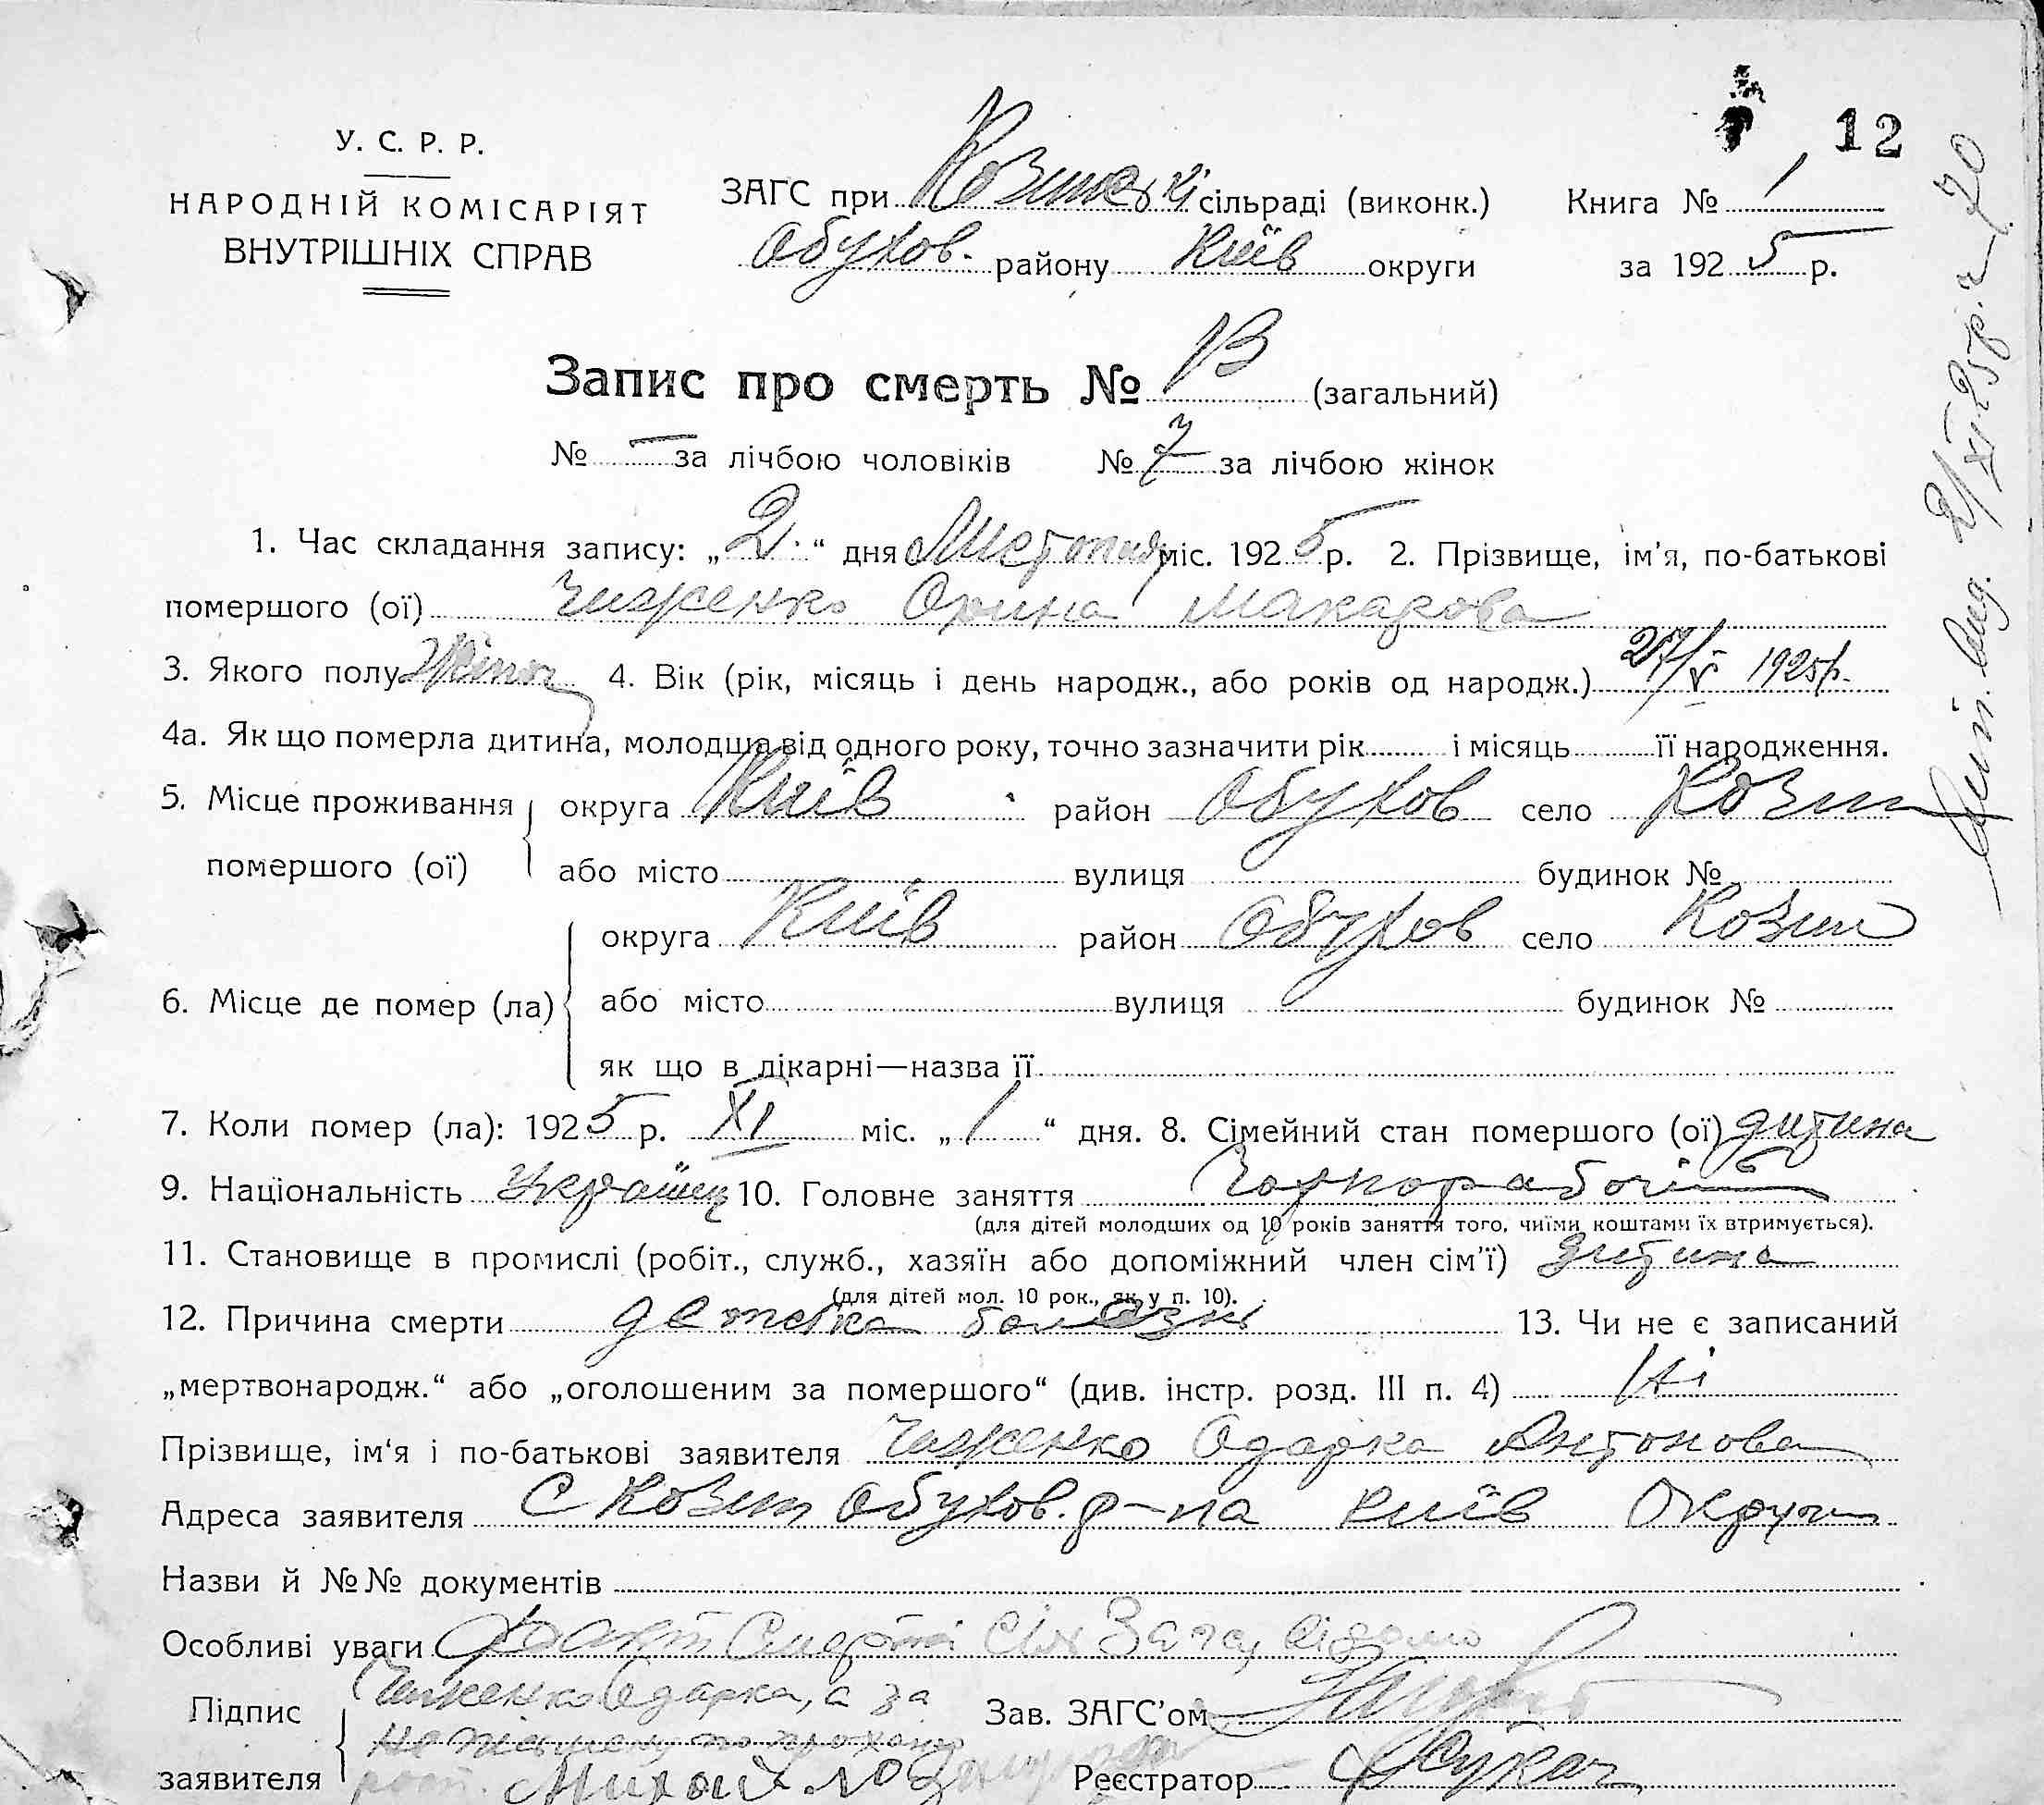 12
У. С. Р. Р.
НАРОДНІЙ КОМІСАРІЯТ
ВНУТРІШНІХ СПРАВ
ЗАГС при Козинській сільраді (виконк.) Книга № 1
Обухов. району Київ округи за 1925 р.
Запис про смерть № 13 (загальний)
№ — за лічбою чоловіків № 7 за лічбою жінок
1. Час складання запису: „2“ дня Листопад міс. 1925 р. 2. Прізвище, ім’я, по-батькові
помершого (ої) Чиженко Орина Макарова
3. Якого полу Жіноч 4. Вік (рік, місяць і день народж., або років од народж.) 27/V 1925р.
4а. Як що померла дитина, молодша від одного року, точно зазначити рік і місяць її народження.
5. Місце проживання помершого (ої) округа Київ район Обухов село Козин
або місто вулиця будинок №
6. Місце де помер (ла) округа Київ район Обухов село Козин
або місто вулиця будинок №
як що в лікарні—назва її
7. Коли помер (ла): 1925 р. XI міс. „1“ дня. 8. Сімейний стан помершого (ої) дитина
9. Національність Україінец 10. Головне заняття Чорнорабочій
(для дітей молодших од 10 років заняття того, чиїми коштами їх втримується).
11. Становище в промислі (робіт., служб., хазяїн або допоміжний член сім’ї) дитина
(для дітей мол. 10 рок., як у п. 10).
12. Причина смерти детска болезнь 13. Чи не є записаний
„мертвонародж.“ або „оголошеним за помершого“ (див. інстр. розд. III п. 4) Ні
Прізвище, ім‘я і по-батькові заявителя Чиженко Одарка Антонова
Адреса заявителя С Козин Обухов. р-на Київ Округи
Назви й №№ документів
Особливі уваги Факт Смерти Сіх Загсу відомо
Підпис заявителя Чиженко Одарка, а за
Зав. ЗАГС’ом
Реєстратор Лукач
2/XI 25р. 70